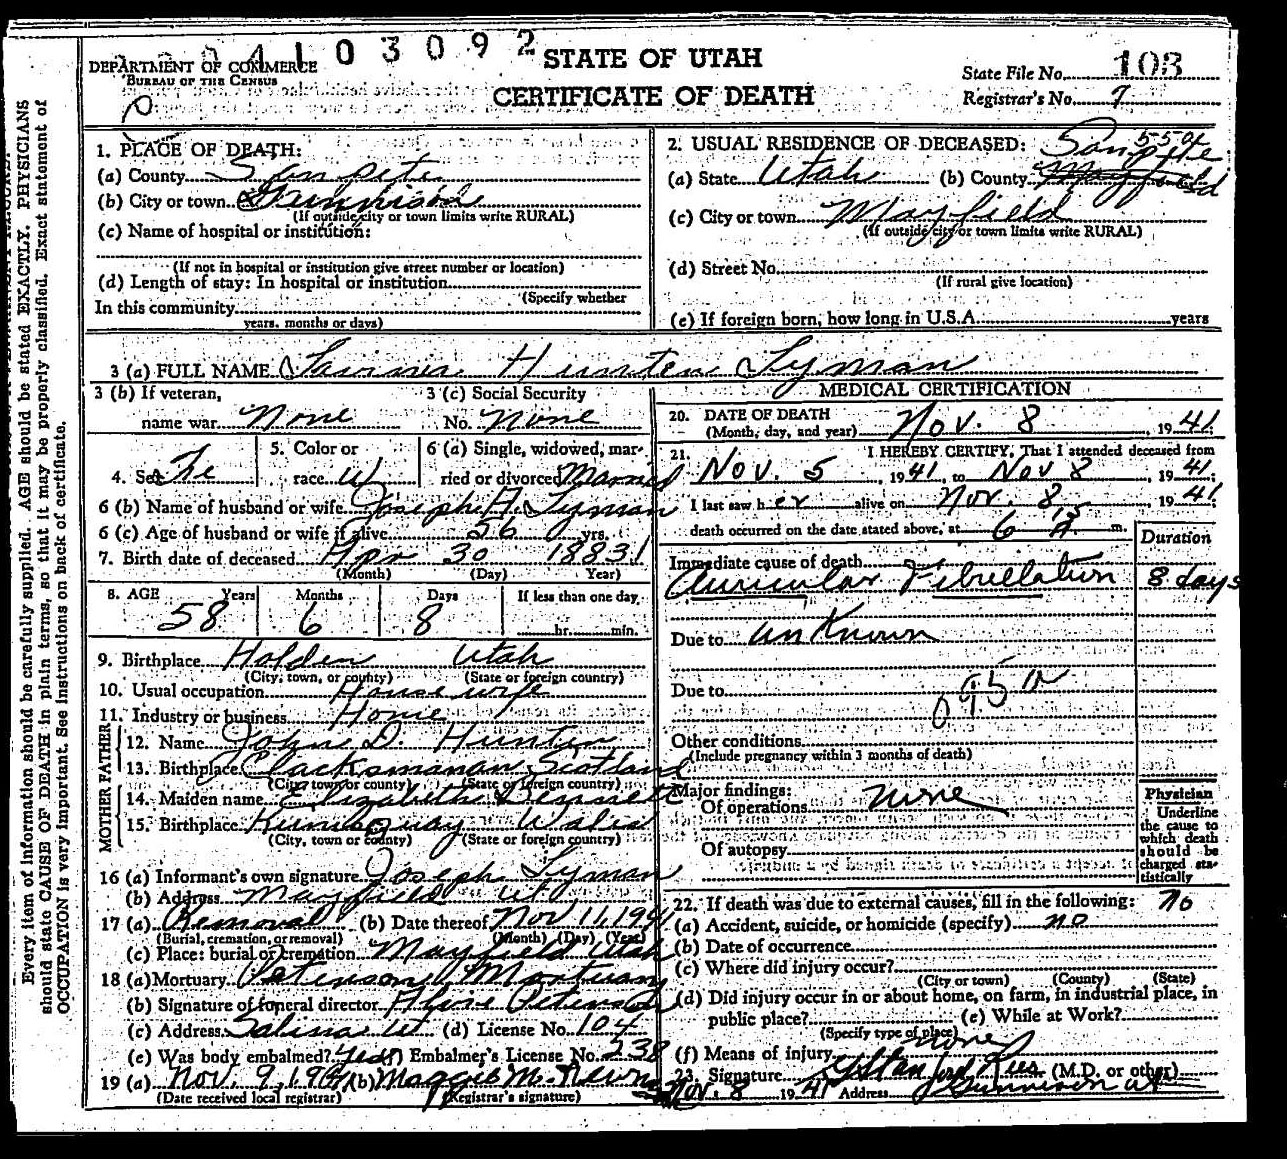 04103092
STATE OF UTAH
CERTIFICATE OF DEATH
DEPARTMENT OF COMMERCE
BUREAU OF THE CENSUS
State File No. 103
Registrar's No. 9
Every item of information should be carefully supplied. AGE should be stated EXACTLY. PHYSICIANS
should state CAUSE OF DEATH in plain terms, so that it may be properly classified. Exact statement of
OCCUPATION is very important. See instructions on back of certificate.
1. PLACE OF DEATH:
(a) County Sanpete
(b) City or town Gunnison
(If outside city or town limits write RURAL)
(c) Name of hospital or institution:
(If not in hospital or institution give street number or location)
(d) Length of stay: In hospital or institution
(Specify whether
In this community
years, months or days)
2. USUAL RESIDENCE OF DECEASED:
(a) State Utah (b) County Sanpete
(c) City or town Mayfield
(If outside city or town limits write RURAL)
(d) Street No.
(If rural give location)
(e) If foreign born, how long in U.S.A. years
3 (a) FULL NAME Hunter Lyman
3 (b) If veteran, name war None
3 (c) Social Security No. None
4. Sex Fe
5. Color or race W
6 (a) Single, widowed, married or divorced Married
6 (b) Name of husband or wife Joseph A. Lyman
6 (c) Age of husband or wife if alive 56 yrs.
7. Birth date of deceased Apr 30 1883
(Month) (Day) Year)
8. AGE Years Months Days If less than one day
58 6 8 hr. min.
9. Birthplace Holden Utah
(City, town, or county) (State or foreign country)
10. Usual occupation House wife
11. Industry or business Home
FATHER
12. Name John D. Hunter
13. Birthplace Clacksmanan Scotland
(City, town or county) (State or foreign country)
MOTHER
14. Maiden name Elizabeth Bennett
15. Birthplace Wales
(City, town or county) (State or foreign country)
16 (a) Informant's own signature Joseph Lyman
(b) Address Mayfield Ut
17 (a) Removal (b) Date thereof Nov 11, 1941
(Burial, cremation, or removal) (Month) (Day) (Year)
(c) Place: burial or cremation Mayfield Utah
18 (a) Mortuary Petersons Mortuary
(b) Signature of funeral director Peterson
(c) Address Salina Ut (d) License No. 104
(e) Was body embalmed? Yes (f) Embalmer's License No. 238
19 (a) Nov. 9, 1941 (b) Maggie M.
(Date received local registrar) (Registrar's signature)
MEDICAL CERTIFICATION
20. DATE OF DEATH
(Month, day, and year) Nov. 8, 1941
21. I HEREBY CERTIFY, That I attended deceased from
Nov. 5, 1941, to Nov 8, 1941.
I last saw her alive on Nov. 8, 1941
death occurred on the date stated above, at 6 15 m.
Duration
Immediate cause of death
Auricular Fibrillation 8 days
Due to unknown
Due to
095
Other conditions
(Include pregnancy within 3 months of death)
Major findings:
Of operations none
Of autopsy
Physician
Underline
the cause to
which death
should be
charged sta-
tistically
22. If death was due to external causes, fill in the following: no
(a) Accident, suicide, or homicide (specify) no
(b) Date of occurrence
(c) Where did injury occur?
(City or town) (County) (State)
(d) Did injury occur in or about home, on farm, in industrial place, in
public place? (e) While at Work?
(Specify type of place)
(f) Means of injury none
23. Signature G Stanford Rees (M.D. or other)
Nov. 8 1941 Address Gunnison ut